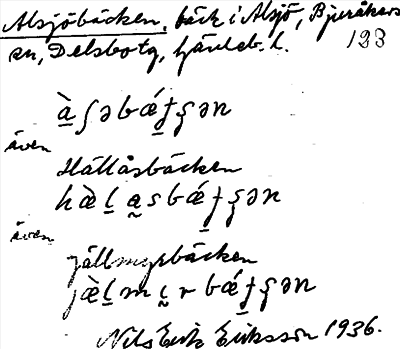 Alsjöbäcken, bäck i Alsjö, Bjuråkers
sn, Delsbo tg, Gävleb. l. 193
à̱ʃəbǽɟʂən
även
Hällåsbäcken
hæ̀ḻa̰sbǽɟʂən
även
jällmyrbäcken
jæ̀ḻmḭrbǽɟʂən
Nils Erik Eriksson 1936.